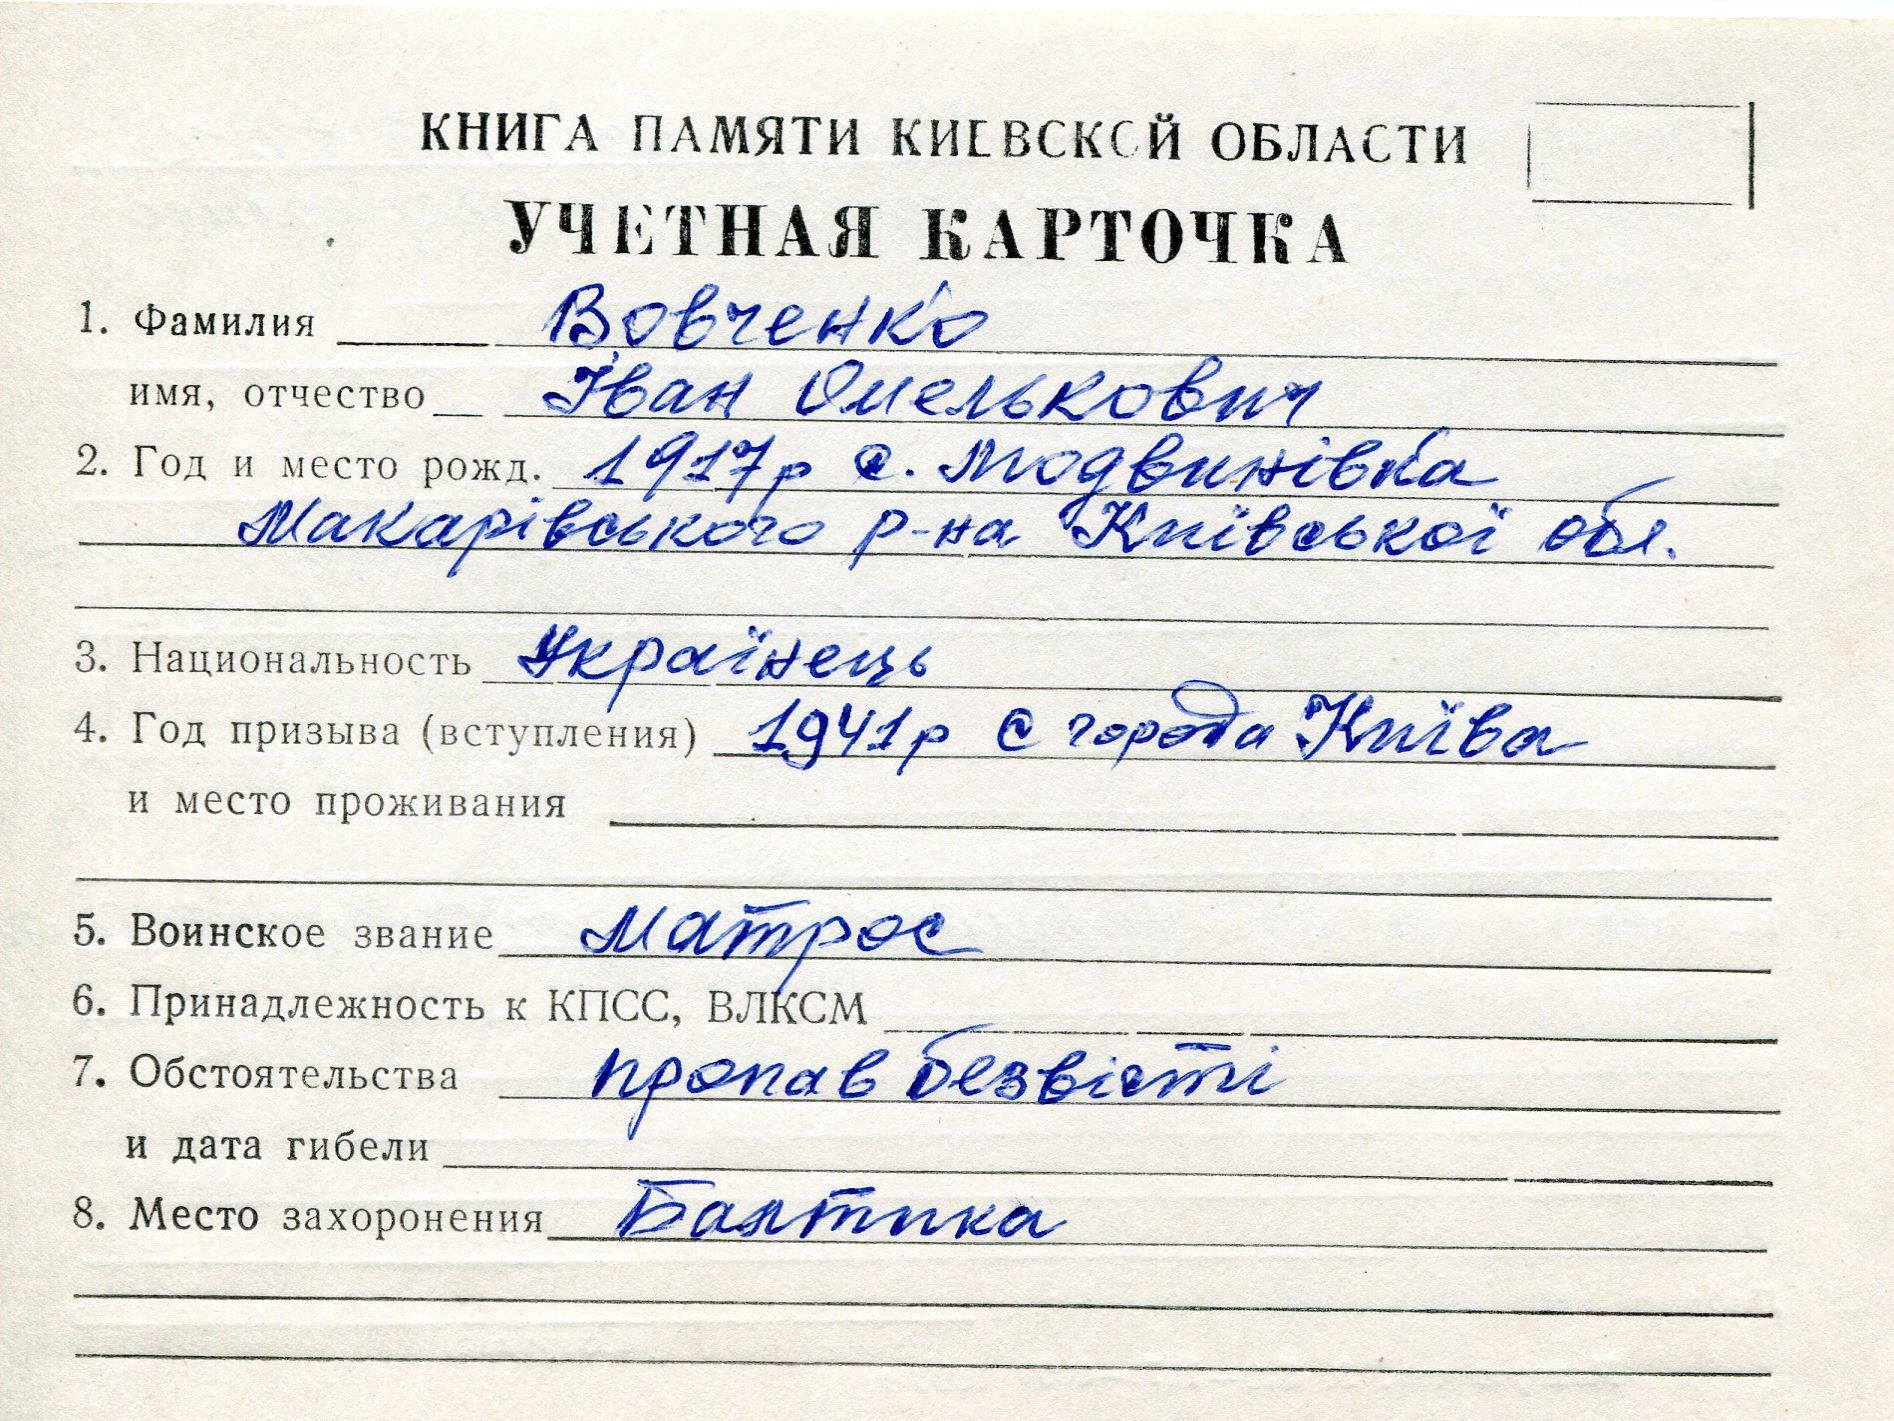 КНИГА ПАМЯТИ КИЕВСКОЙ ОБЛАСТИ
УЧЕТНАЯ КАРТОЧКА
1. Фамилия Вовченко
имя, отчество Іван Омелькович
2. Год и место рожд. 1917р с. Модвинівка
Макарівського р-на Київської обл.
3. Национальность Українець
4. Год призыва (вступления) 1941р с города Київа
и место проживания
5. Воинское звание Матрос
6. Принадлежность к КПСС, ВЛКСМ
7. Обстоятельства пропав безвісти
и дата гибели
8. Место захоронения Балтика